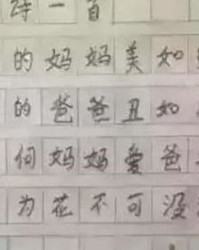 诗一首
的妈妈美如
的爸爸丑如
何妈妈爱爸
为花不可没